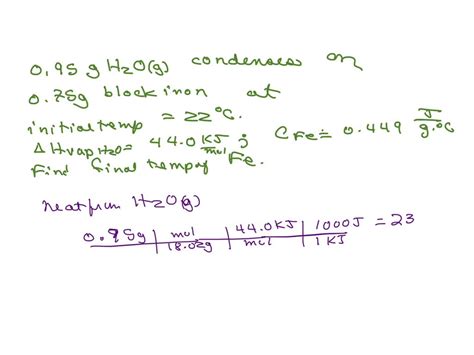 0.95 g H2O(g) condenses on
0.75g block iron at
initial temp = 22°C.
ΔHvap H2O = 44.0 KJ/mol ; CFe = 0.449 J/g·°C
Find final temp of Fe.
heat from H2O(g)
0.95g | mol/18.02g | 44.0KJ/mol | 1000J/1KJ = 23